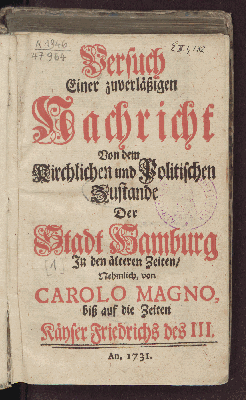 A 1946
47964
Versuch
Einer zuverläßigen
Nachricht
Von dem
Kirchlichen und Politischen
Zustande
Der
Stadt Hamburg
In den älteren Zeiten/
Nehmlich, von
CAROLO MAGNO,
biß auf die Zeiten
Käyser Friedrichs des III.
An. 1731.